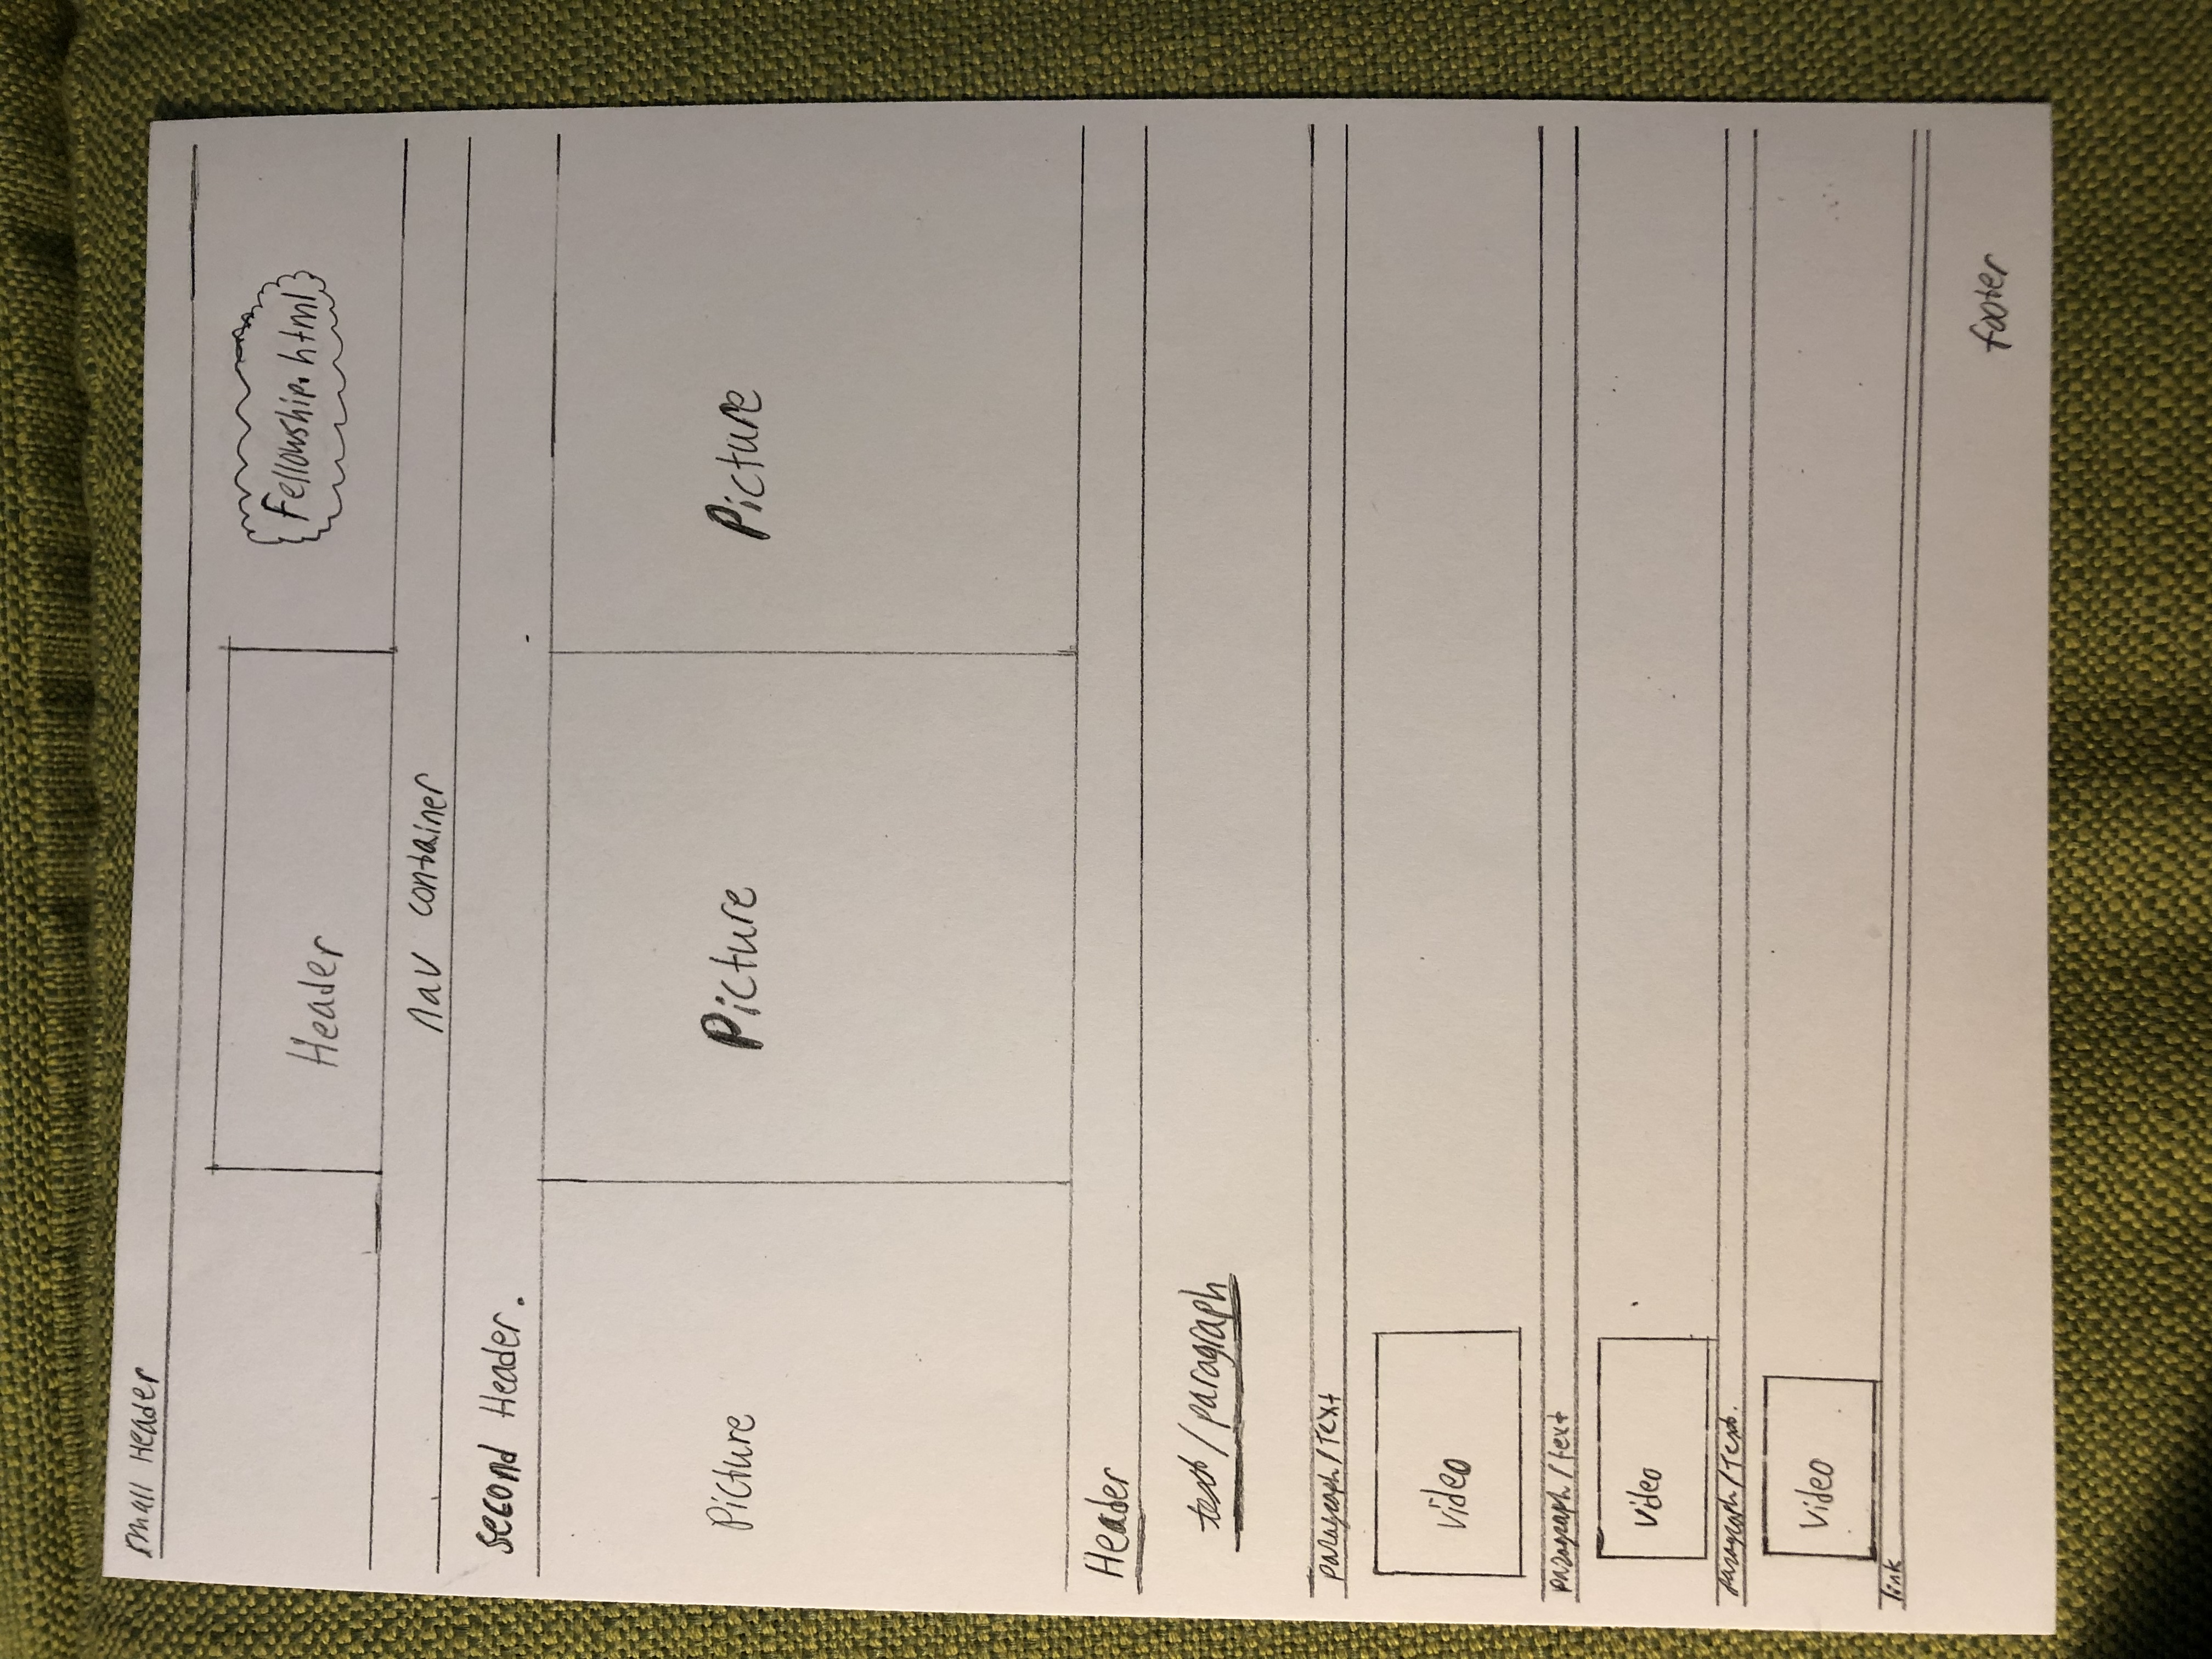 small Header
Header
Fellowship.html
nav container
second Header.
Picture
Picture
Picture
Header
text/paragraph
paragraph/Text
video
paragraph/text
video
paragraph/Text.
Video
link
footer